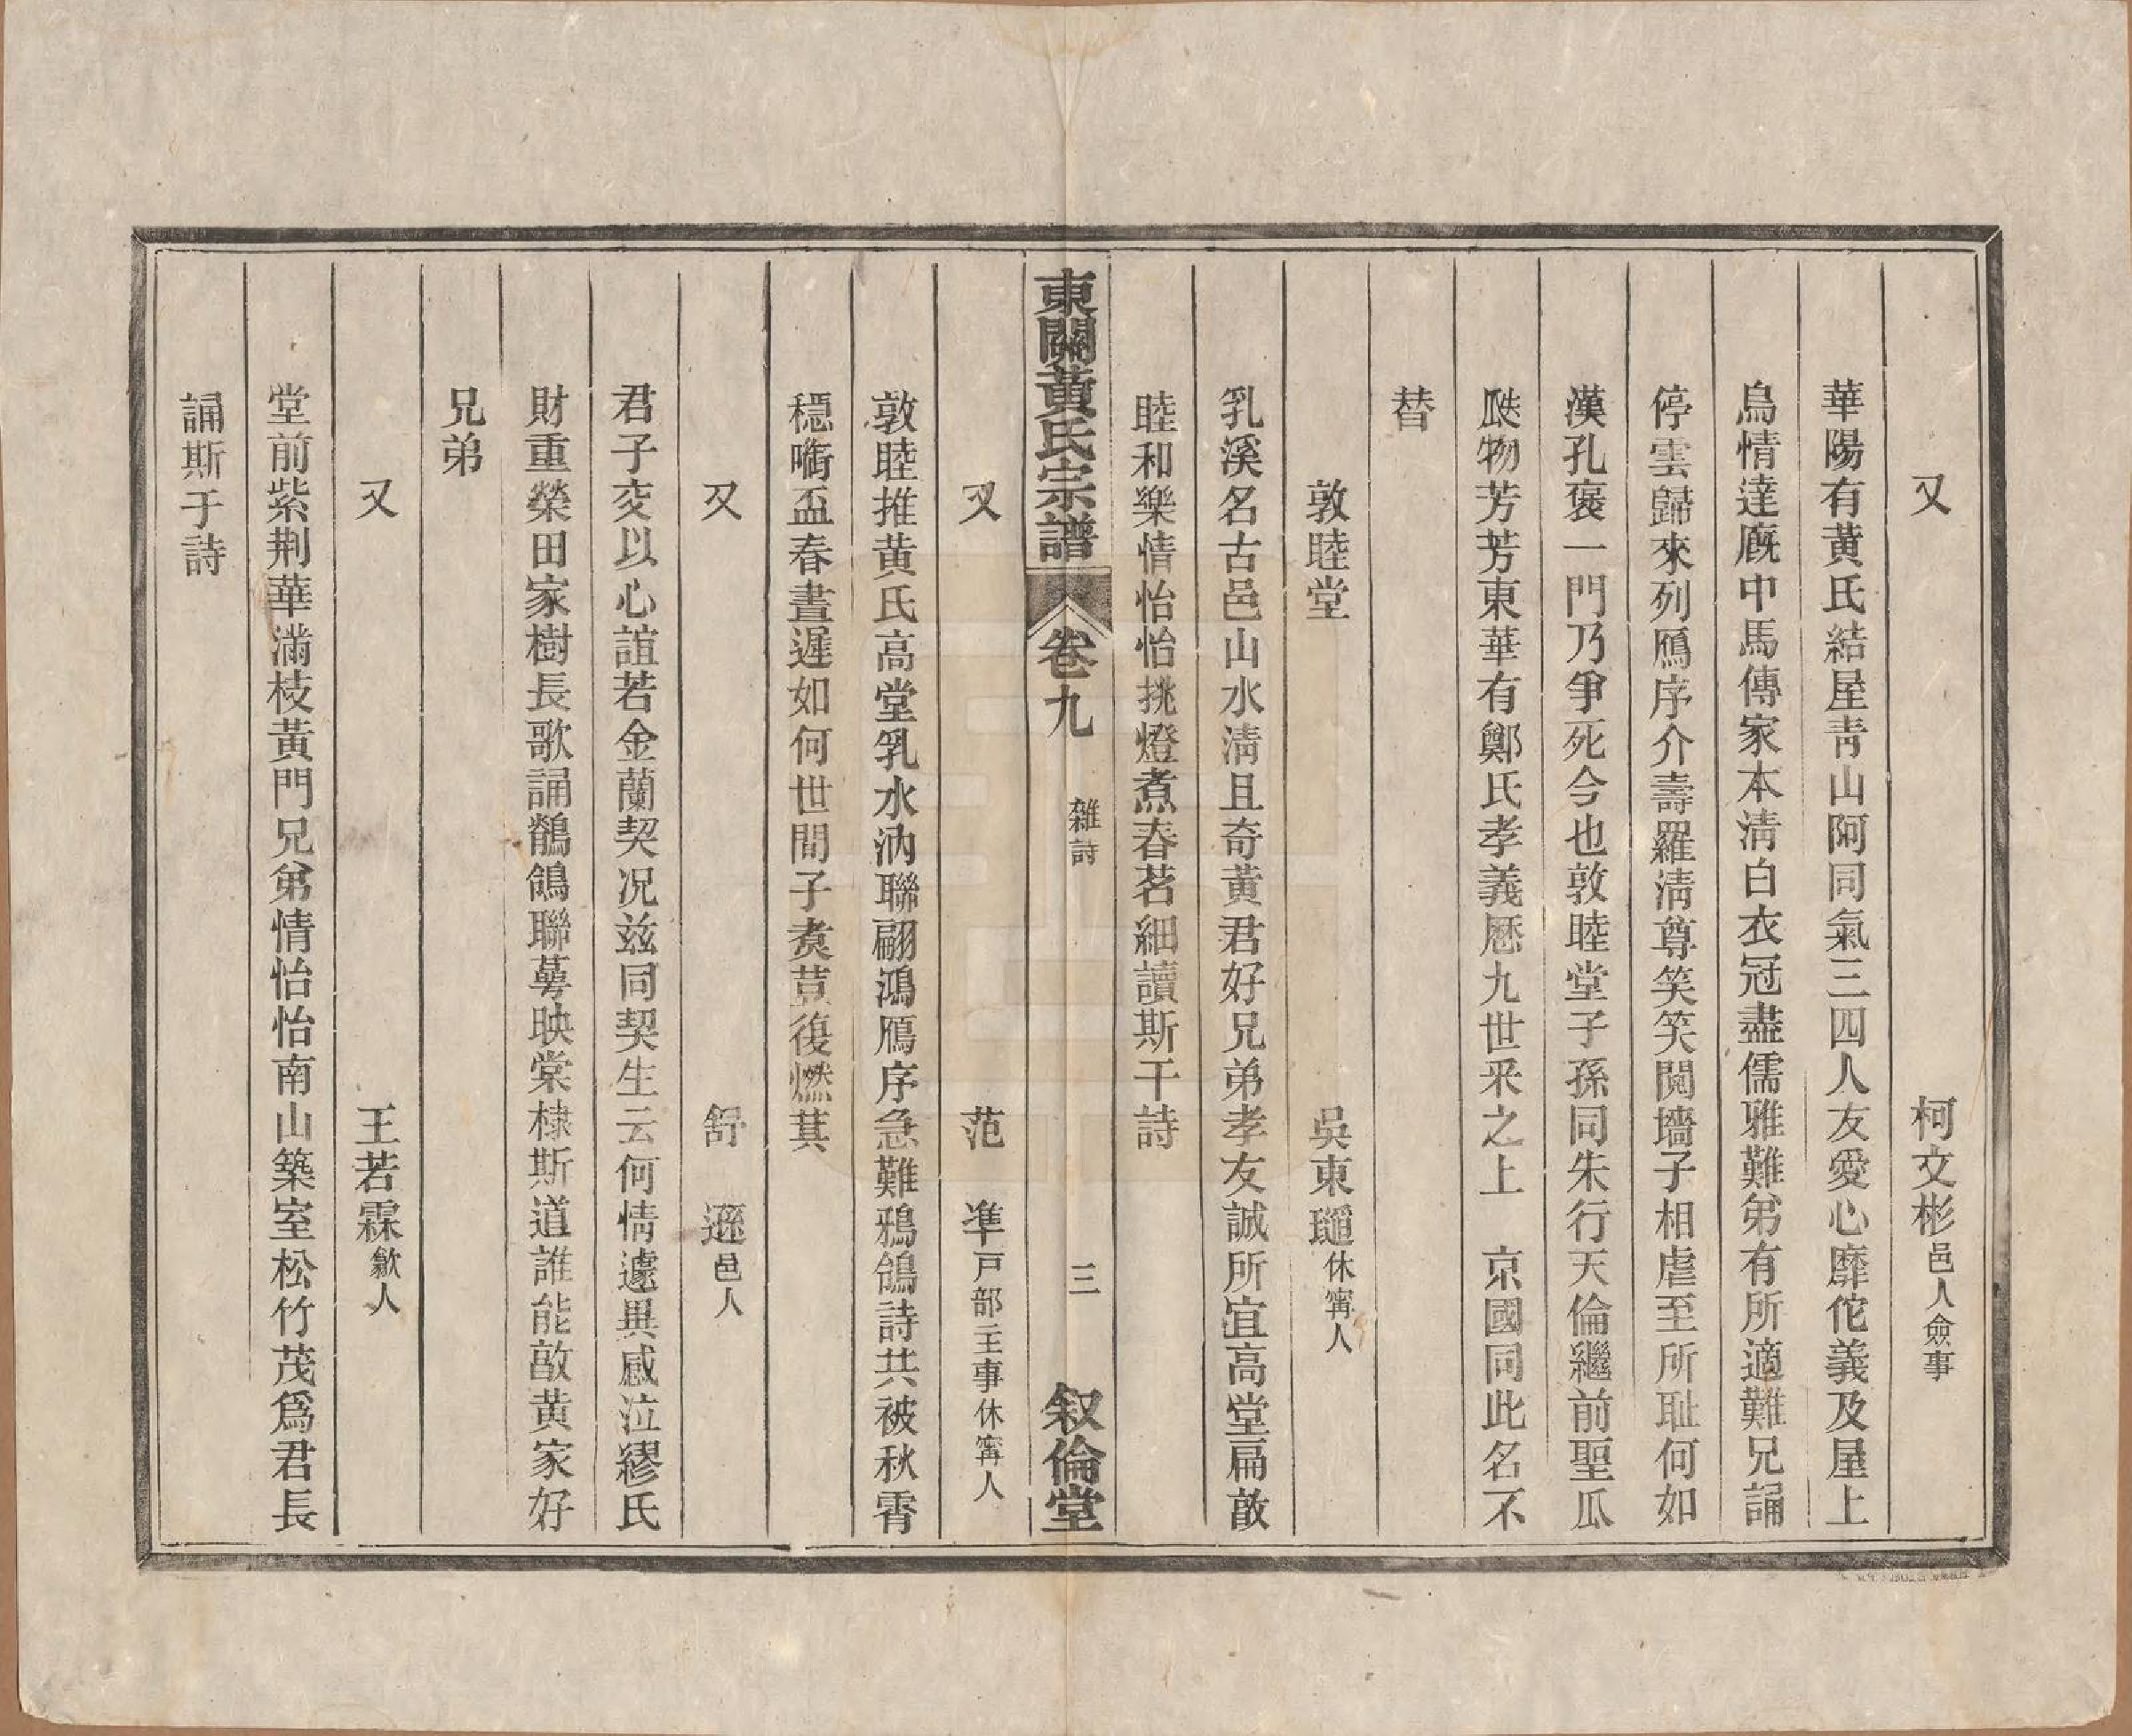 又　　　柯文彬邑人僉事
華陽有黄氏結屋靑山阿同氣三四人友愛心靡佗義及屋上
烏情達廐中馬傳家本淸白衣冠盡儒雅難弟有所適難兄誦
停雲歸來列鴈序介壽羅淸尊笑笑鬩墻子相虐至所耻何如
漢孔褒一門乃爭死今也敦睦堂子孫同朱行天倫繼前聖瓜
瓞物芳芳東華有鄭氏孝義歷九世釆之上　京國同此名不
替
敦睦堂　　　吳東瑙休甯人
乳溪名古邑山水淸且奇黃君好兄弟孝友誠所宜高堂扁敵
睦和樂情怡怡挑燈煮春茗細讀斯干詩
東關黃氏宗譜　卷九　雜詩　三　叙倫堂
又　　　范　準戸部主事休甯人
敦睦推黄氏高堂乳水汭聯翩鴻鴈序急難鴉鴿詩共被秋霄
穏啣盃春晝遲如何世間子煑荳復燃萁
又　　　舒　遜邑人
君子交以心誼若金蘭契况兹同契生云何情遽異感泣繆氏
財重榮田家樹長歌誦鶺鴒聯蕚映棠棣斯道誰能敵黄家好
兄弟
又　　　王若霖歙人
堂前紫荆華滿枝黃門兄弟情怡怡南山築室松竹茂爲君長
誦斯于詩